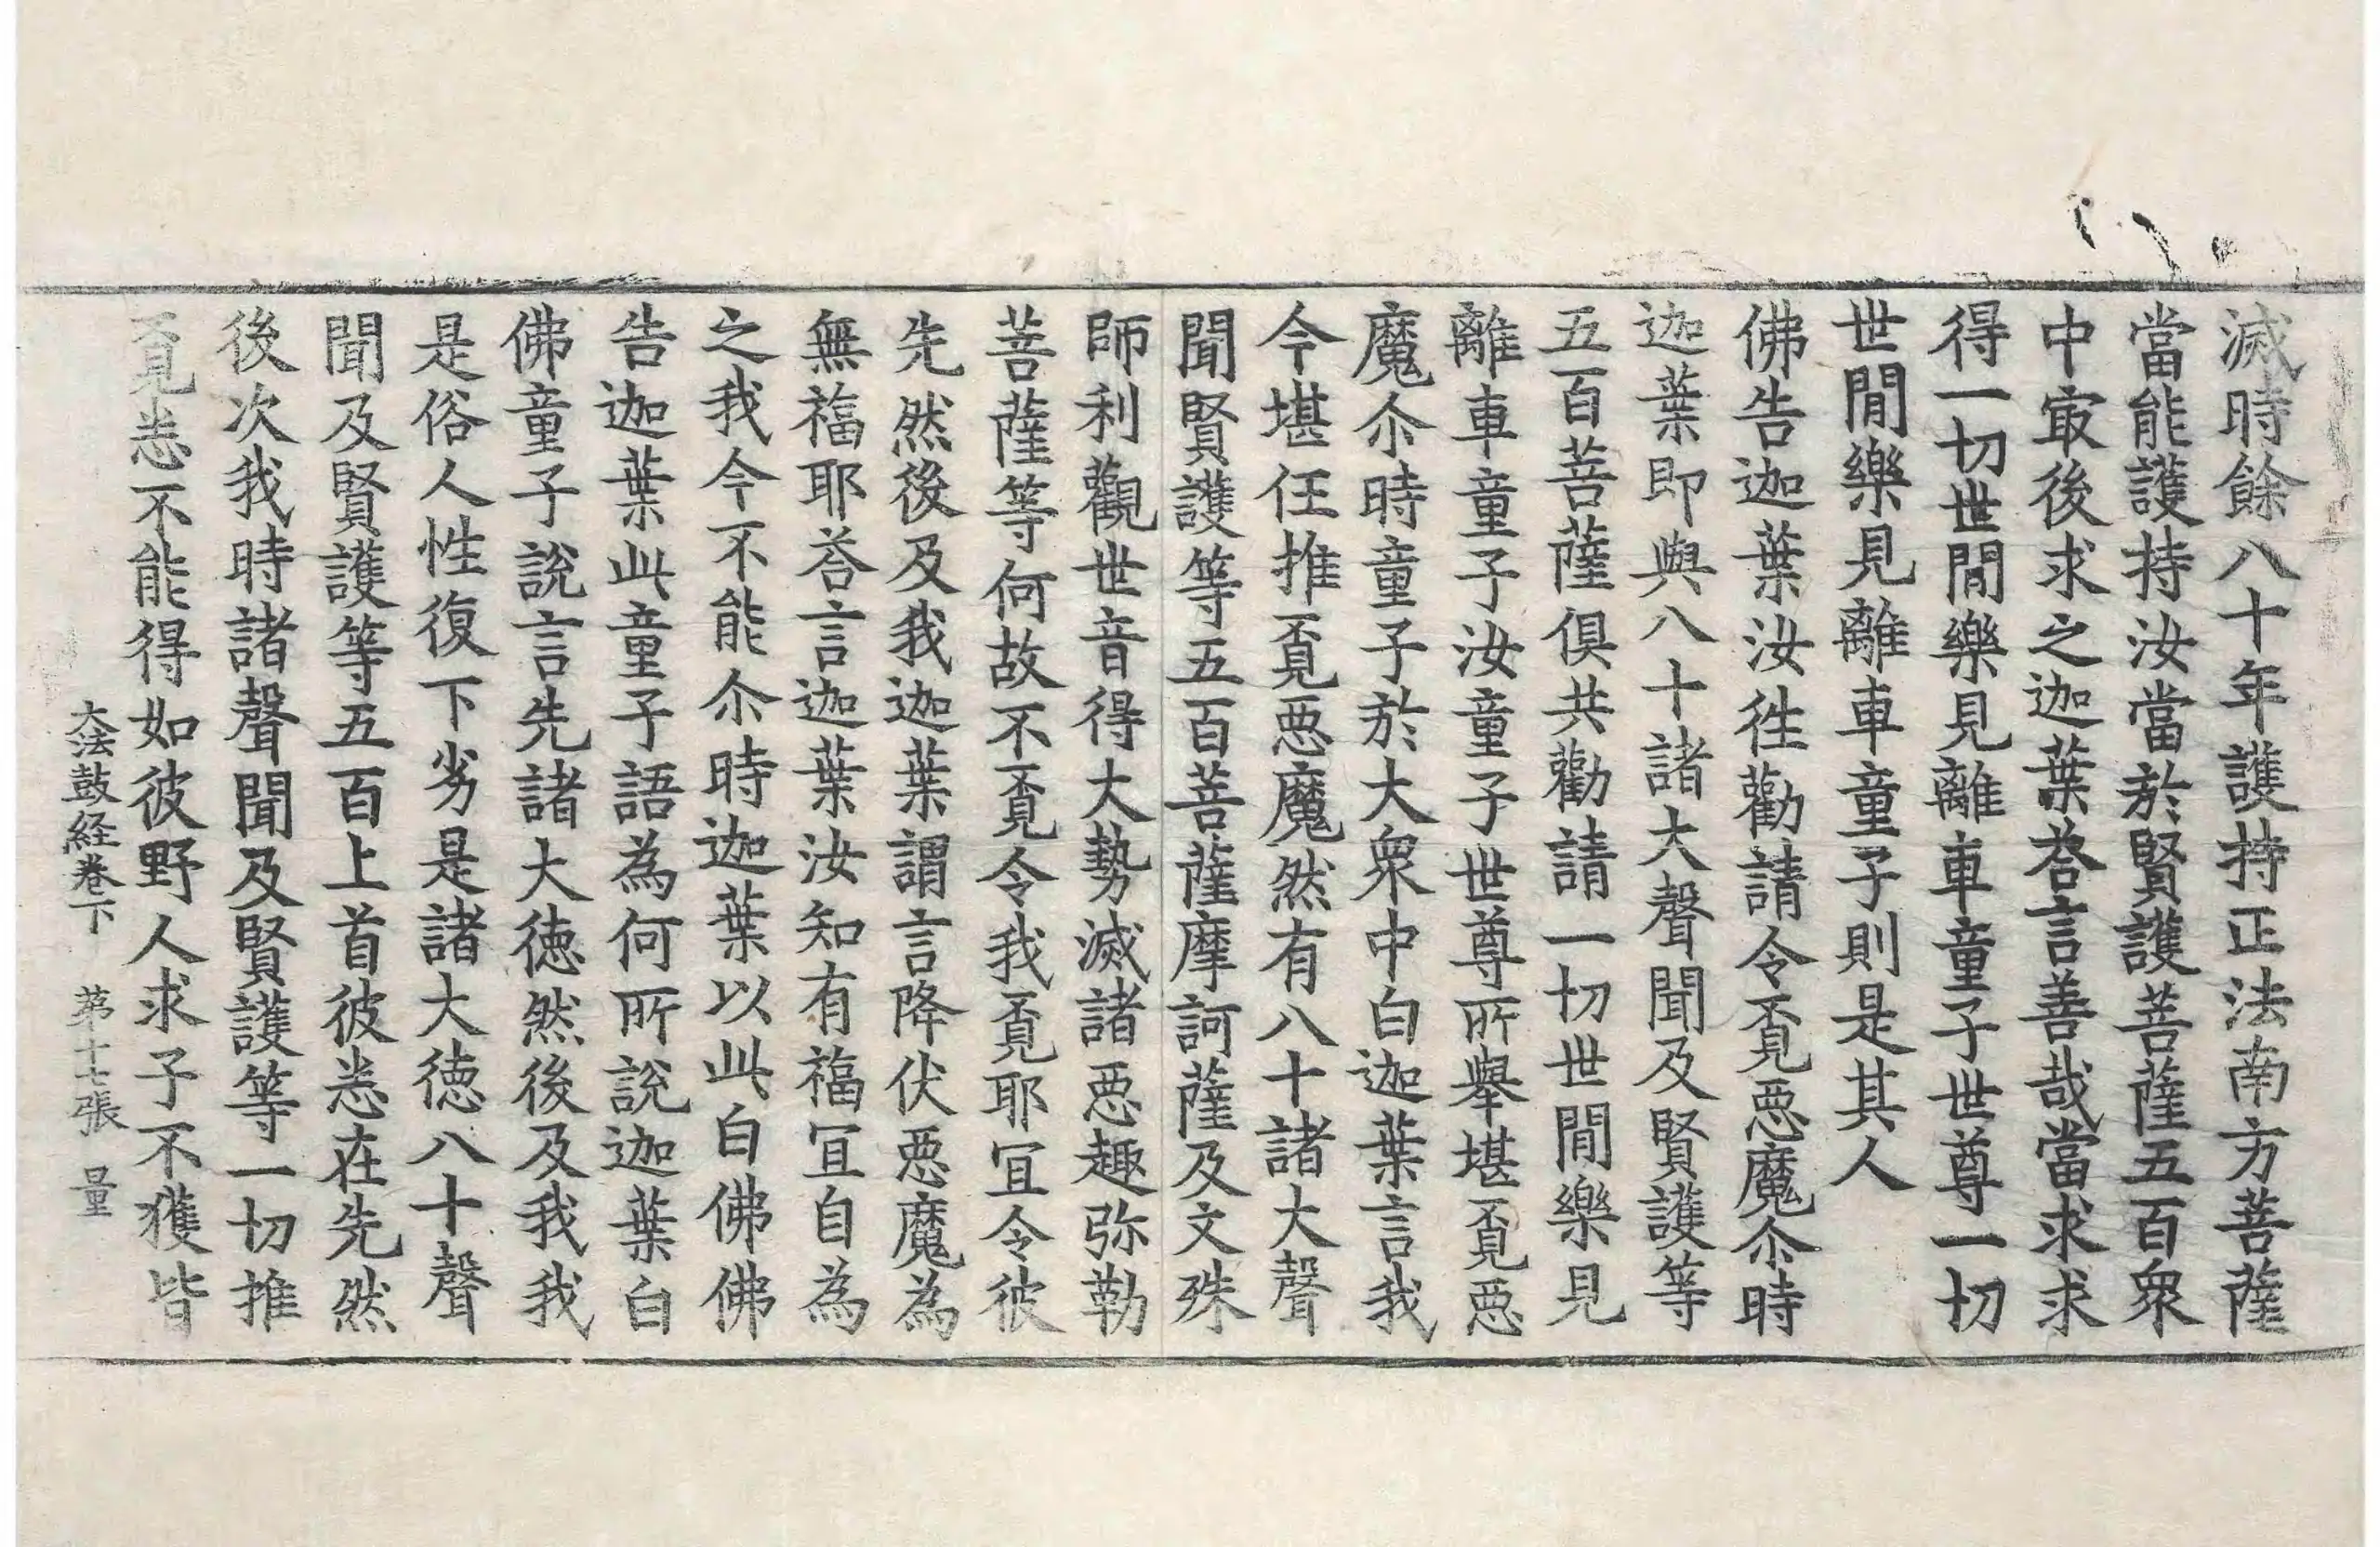 滅時餘八十年護持正法南方菩薩
當能護持汝當於賢護菩薩五百衆
中㝡後求之迦葉荅言善哉當求求
得一切世閒樂見離車童子世尊一切
世閒樂見離車童子則是其人
佛告迦葉汝徃勸請令覔惡魔尒時
迦葉即與八十諸大聲聞及賢護等
五百菩薩俱共勸請一切世閒樂見
離車童子汝童子世尊所舉堪覔惡
魔尒時童子於大衆中白迦葉言我
今堪任推覔惡魔然有八十諸大聲
聞賢護等五百菩薩摩訶薩及文殊
師利觀世音得大勢滅諸惡趣弥勒
菩薩等何故不覔令我覔耶冝令彼
先然後及我迦葉謂言降伏惡魔為
無福耶荅言迦葉汝知有福冝自為
之我今不能尒時迦葉以此白佛佛
告迦葉此童子語為何所說迦葉白
佛童子說言先諸大徳然後及我我
是俗人性復下劣是諸大徳八十聲
聞及賢護等五百上首彼悉在先然
後次我時諸聲聞及賢護等一切推
覔悉不能得如彼野人求子不獲皆
大法鼓経卷下 苐十七張 量